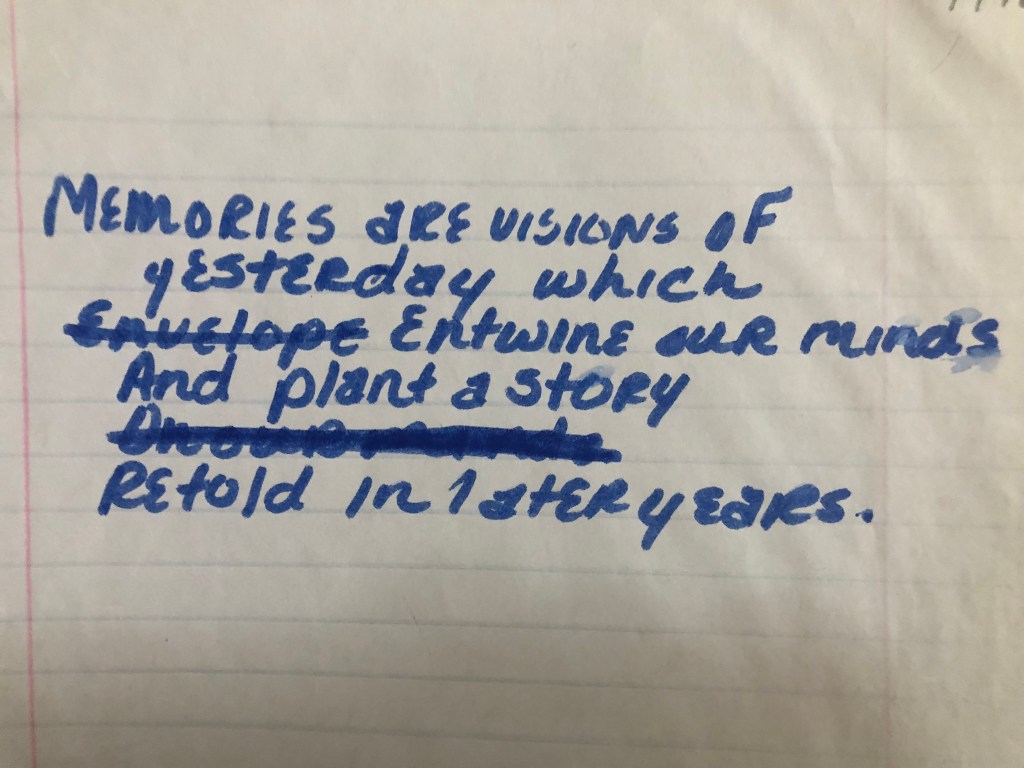 Memories are visions of
yesterday which
Envelope Entwine our minds
And plant a story
Retold in later years.